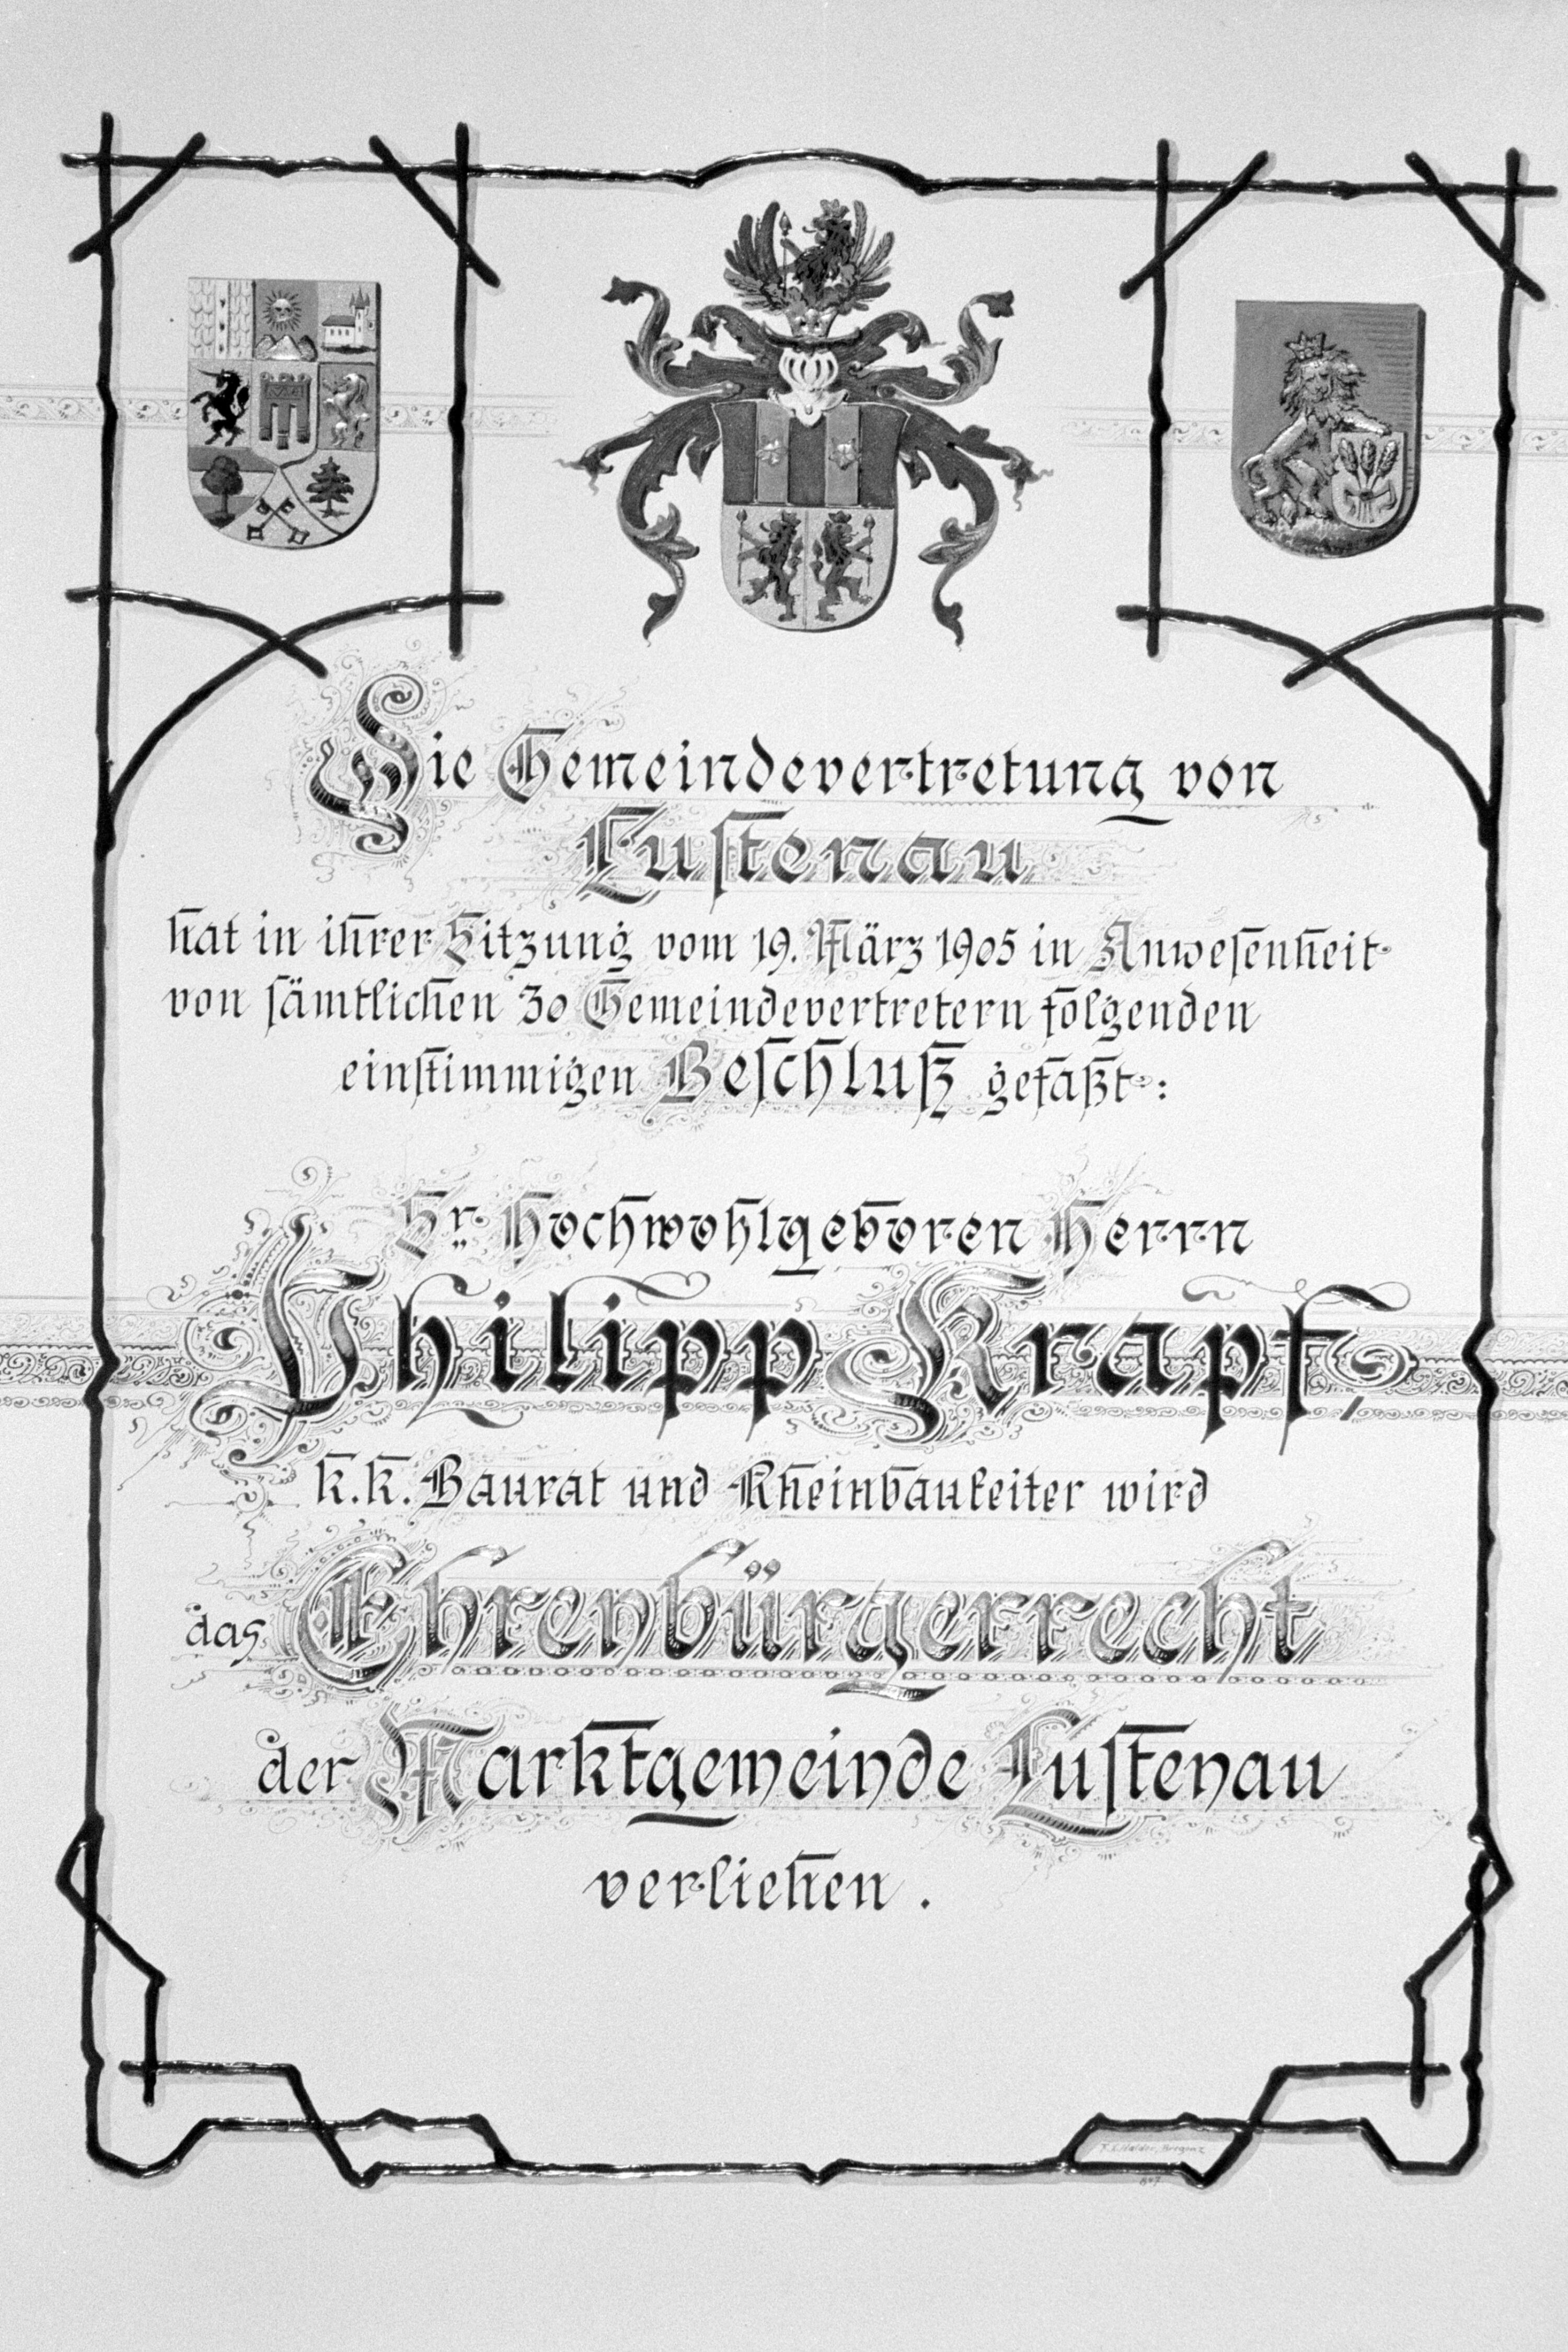 Die Gemeindevertretung von
Lustenau
hat in ihrer Sitzung vom 19. März 1905 in Anwesenheit
von sämtlichen 30 Gemeindevertretern folgenden
einstimmigen Beschluß gefaßt:
Sr. Hochwohlgeboren Herrn
Philipp Krapf,
k. k. Baurat und Rheinbauleiter wird
das Ehrenbürgerrecht
der Marktgemeinde Lustenau
verliehen.
Bregenz